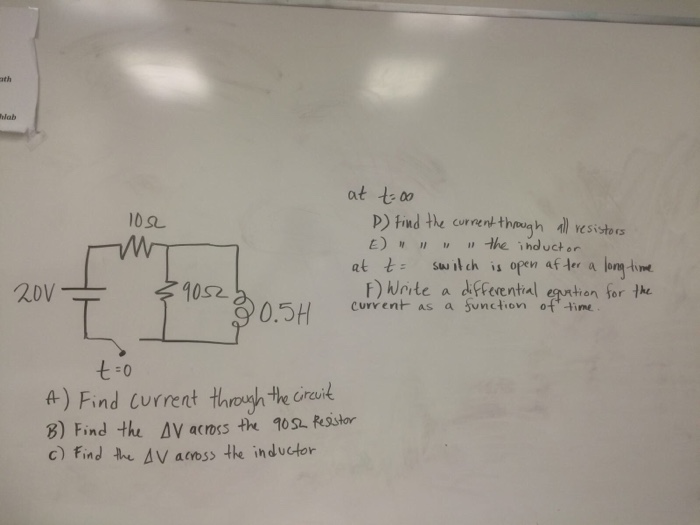 ath
hlab
10Ω
20V
90Ω
0.5H
t=0
A) Find current through the circuit
B) Find the ΔV across the 90Ω Resistor
C) Find the ΔV across the inductor
at t=∞
D) Find the current through all resistors
E) " " " " the inductor
at t= switch is open after a long time
F) Write a differential equation for the
current as a function of time.